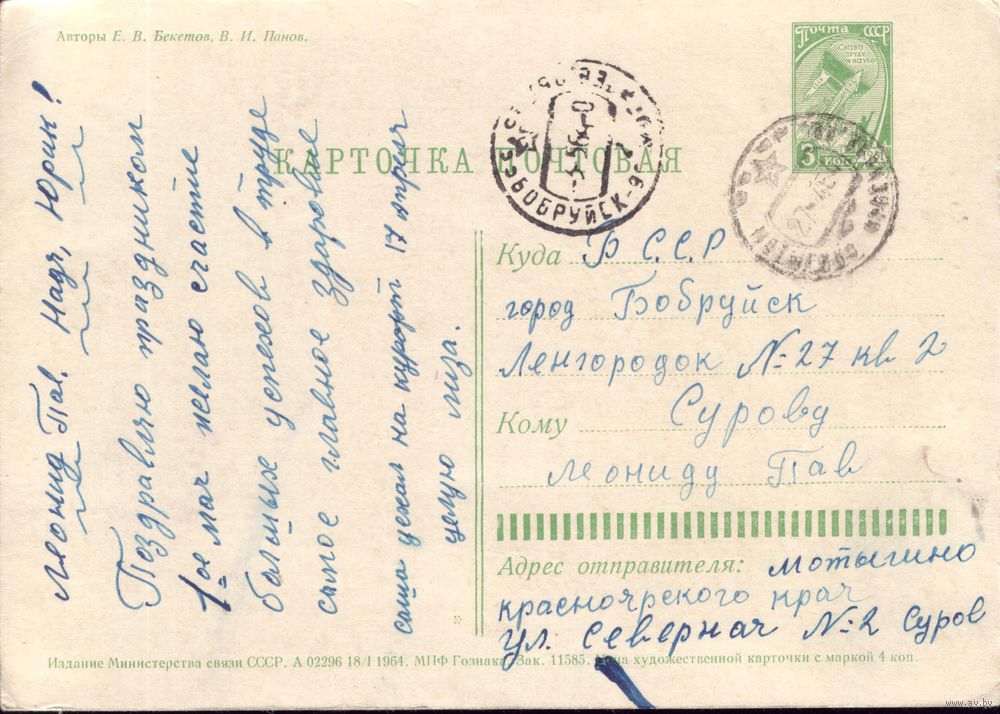 Авторы Е. В. Бекетов, В. И. Панов.
Почта СССР
Слава
труду
и науке
3 коп
КАРТОЧКА ПОЧТОВАЯ
БОБРУЙСК-9
Леонид Пав. Надя, Юрик!
Поздравляю праздником
1-ое мая желаю счастье
больших успехов в труде
самое главное здоровье
саша уехал на курорт 17 апреля
целую лиза.
Куда Б С.С.Р
город Бобруйск
Ленгородок №-27 кв 2
Кому Сурову
Леониду Пав
Адрес отправителя: Мотыгино
красноярского края
ул. Северная №2 Суров
Издание Министерства связи СССР. А 02296 18/I 1964. МПФ Гознака. Зак. 11585. Цена художественной карточки с маркой 4 коп.
www.av.by